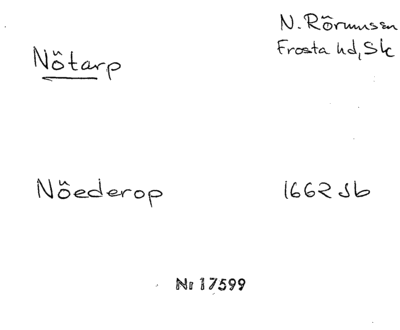 N. Rörumssn
Nötarp
Frosta hd, Sk
Nöederop 1662 Jb
Nr 17599